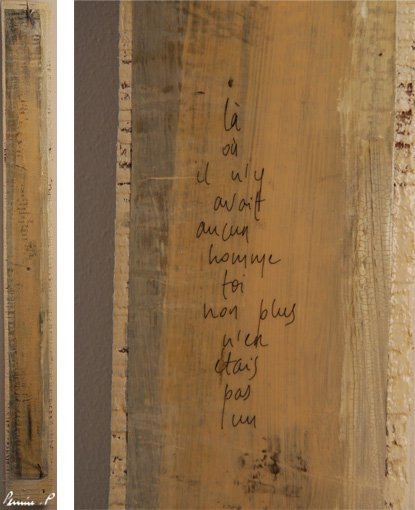 là
où
il n'y
avait
aucun
homme
toi
non plus
n'en
étais
pas
un